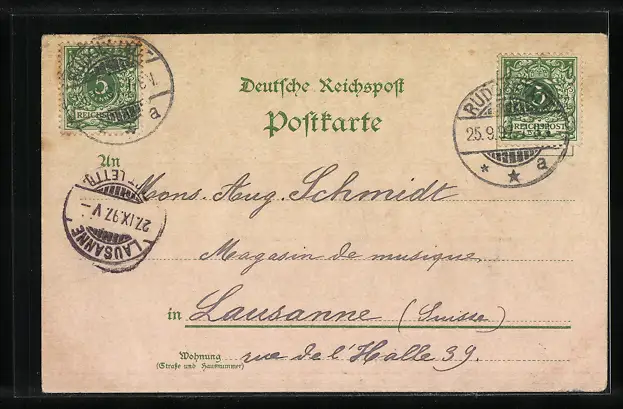 Deutsche Reichspost
Postkarte
5
REICHSPOST
a
RÜD
25.9.9
a
5
REICHSPOST
An
Mons. Aug. Schmidt
LAUSANNE
27.IX.97.V
LETTR
Magasin de musique
in Lausanne (Suisse)
Wohnung
(Straße und Hausnummer)
rue de l'Halle 39.